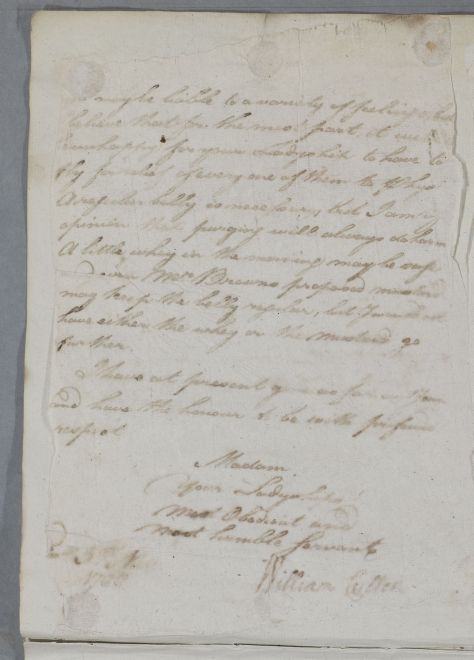 may be liable to a variety of feelings, but
believe that for the most part it was
unhappy for your Ladyship to have to
fly for relief of every one of them to Whey
A regular belly is necessary, but I am of
opinion that purging will always do harm
A little whey in the morning may be safe
Mrs Browns proposed mustard
may keep the belly regular, but I would not
have either the whey or the mustard go
further.
I have at present
and have the honour to be with profound
respect
Madam
Your Ladyships
most Obedient and
most humble Servant
William Cullen